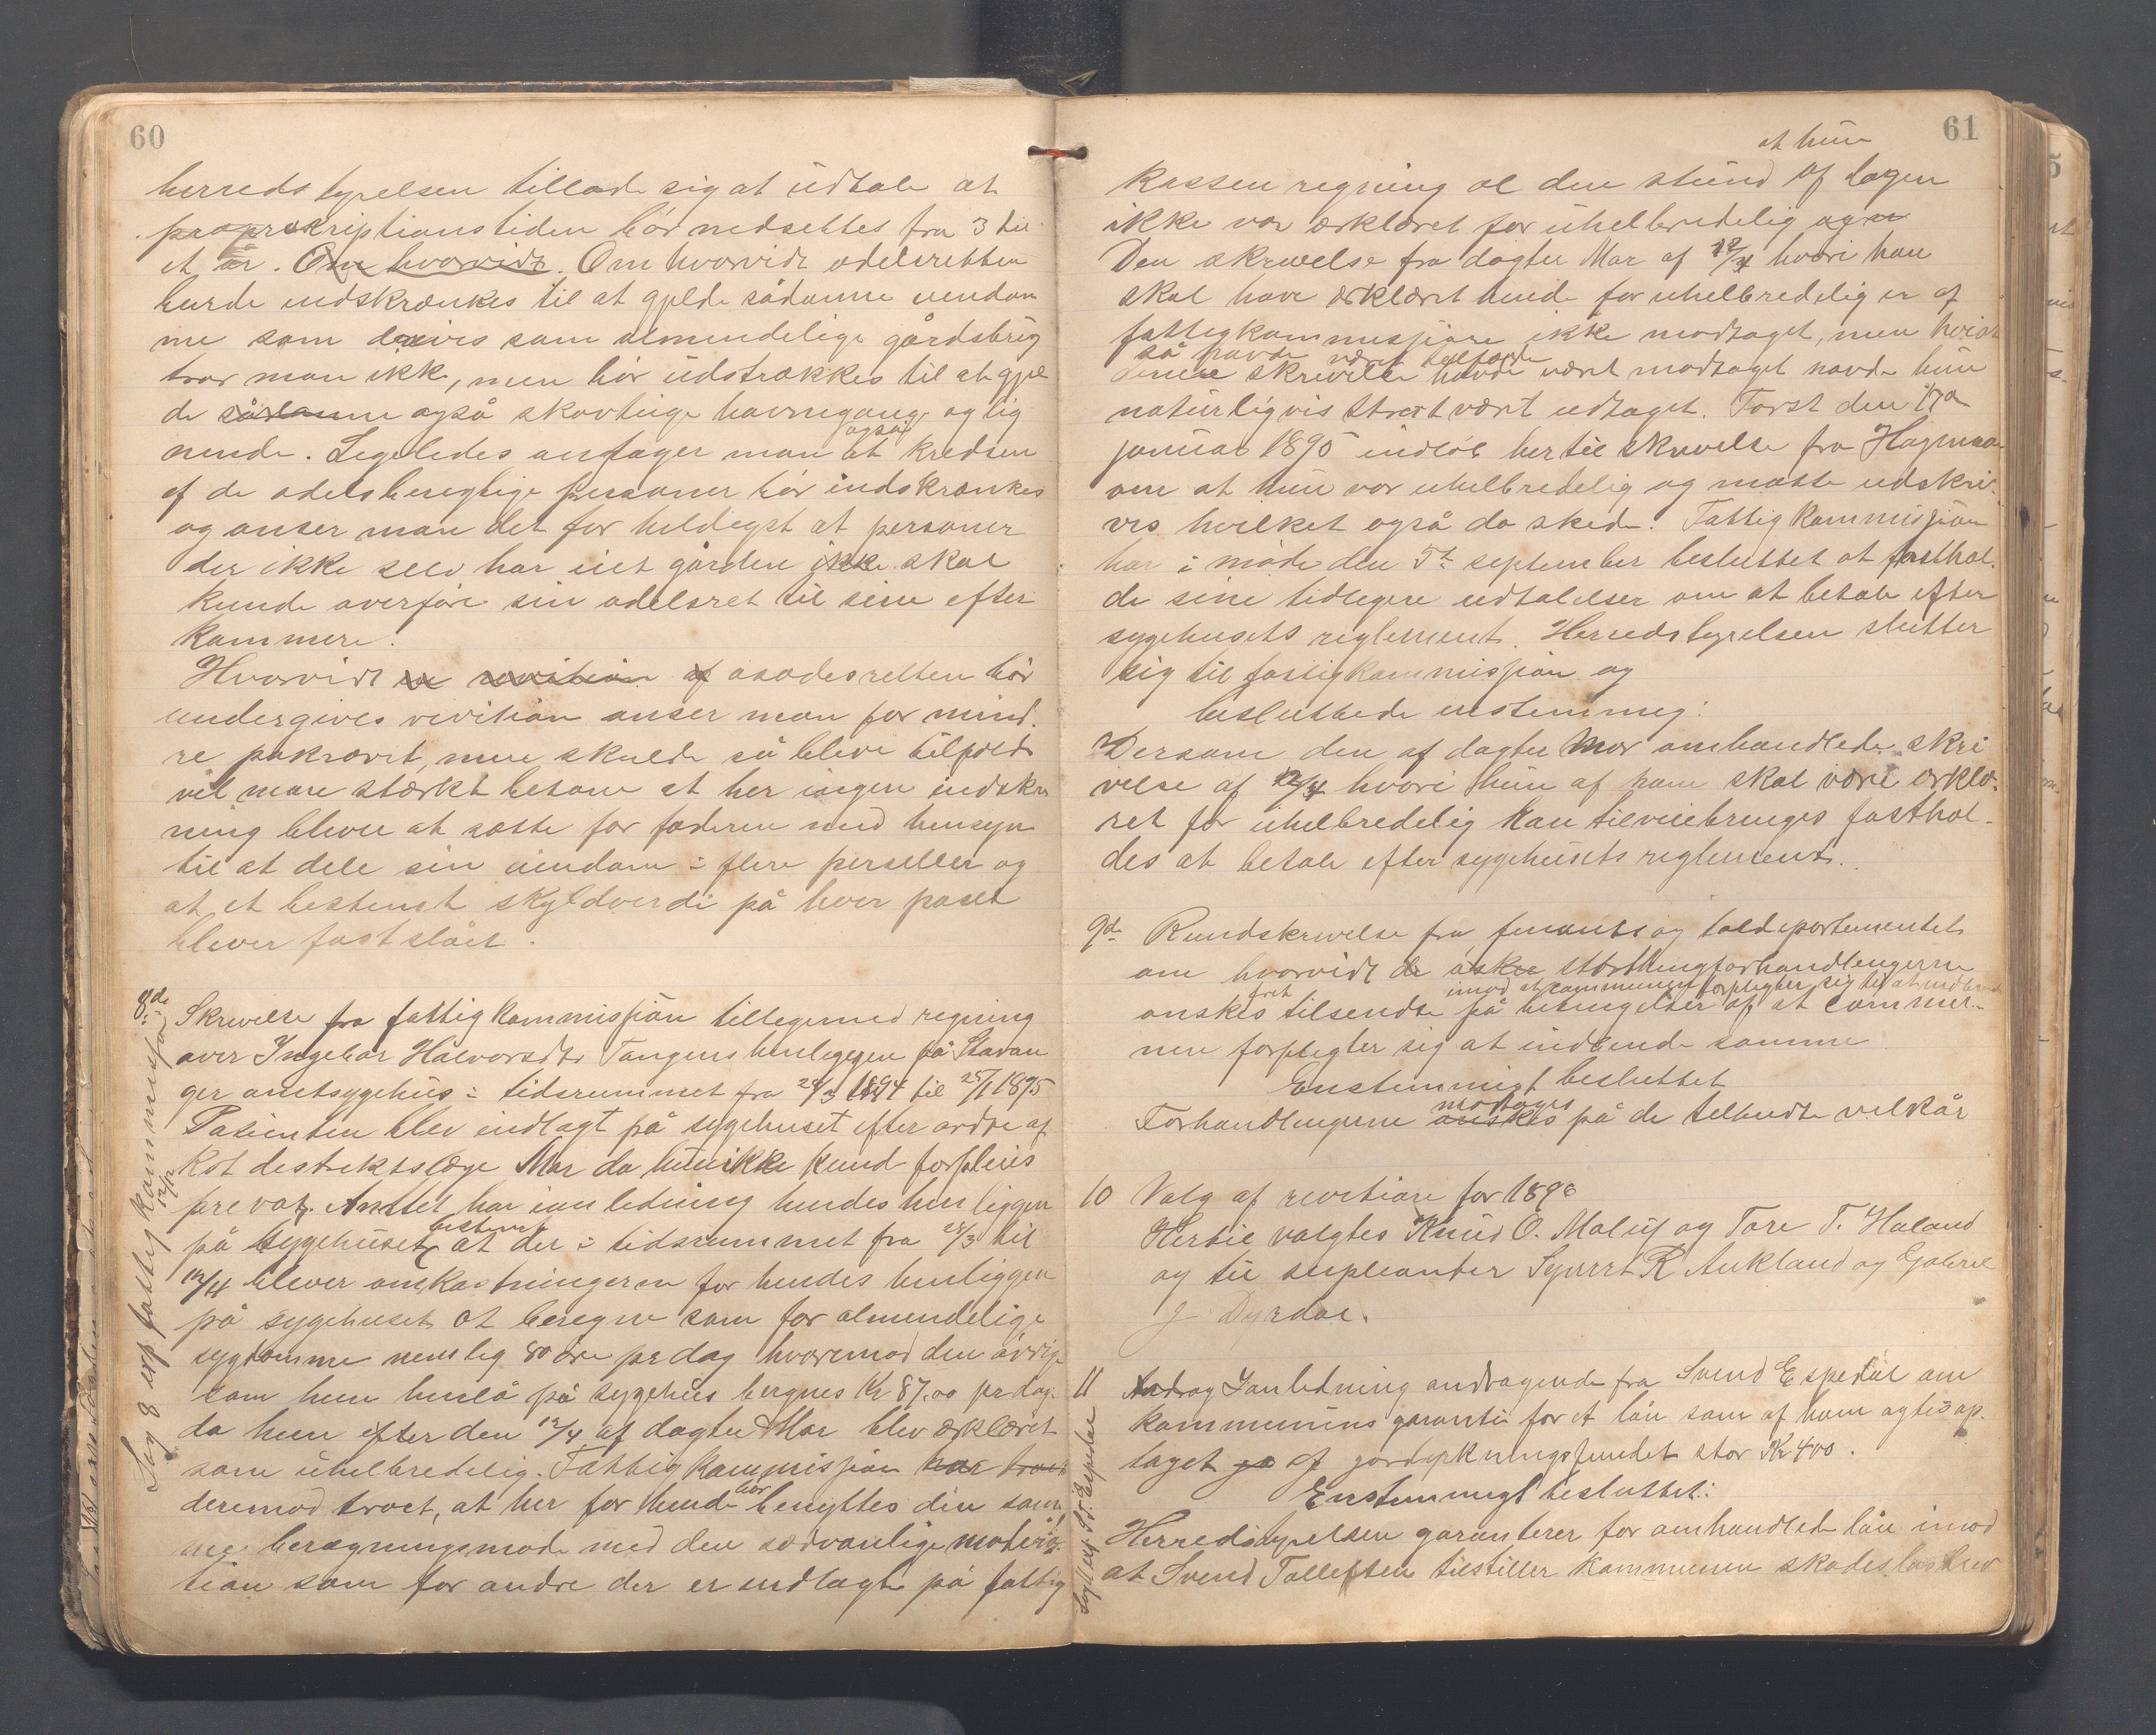 60
herredstyrelsen tillade sig at udtale at
preskriptionstiden bör nedsettes fra 3 til
et år. Om hvorvidt. Om hvorvidt odelsretten
burde indskrænkes til at gjelde sådanne eiendom
me som drives som almindelige gårdsbrug
tror man ikke, men bör udstrækkes til at gjel
de sådanne også skovteige havnegange og lig
nende. Ligeledes antager man også at kredsen
af de odelsberegtige personer bör indskrænkes
og anser man det for heldigst at personer
der ikke selv har eiet gården ikke skal
kunde overföre sin odelsret til sine efter
kommere.
Hvorvidt en revition af åsædesretten bör
undergives revition anser man for mind.
re påkrævet, men skulde så bleve tilfelde
vil man stærkt betone at her ingen indskr
ning blever at sætte for faderen med hensyn
til at dele sin eiendom i flere perseller og
at et bestemt skyldverdi på hver parsel
blever fastslået.
8de Skrivelse fra fattigkommissjon tilligemed regning
over Ingebor Halvorsdtr Tangens henliggen på Stavan
ger amtsygehus i tidsrummet fra 28/3 1894 til 25/1 1895
Pasienten blev indlagt på sygehuset efter ordre af
Kst destriktslæge Mar da hun ikke kund forpleies
prevat. Amtet har i anledning hendes henliggen
på sygehuset bestemt at der i tidsrummet fra 28/3 til
12/4 blever omkostningerne for hendes henliggen
på sygehuset at beregne som for almendelige
sygdomme nemlig 80 öre pr dag hvoremod den övrige
som hun henlå på sygehus beregnes Kr 87.00 pr dag.
da hun efter den 12/4 af dogter Mar blev erklæret
som uhelbredelig. Fattigkommissjon har troet
deremod troet, at her for hende bör benyttes den sam
me beregningsmåde med den sedvanlige modera
tion som for andre der er indlagte på fattig
Sag 8 exp fattigkommissjon 12/12
61
kassen regning al den stund at hun af lægen
ikke var erklæret for uhelbredelig og
Den skrivelse fra dogter Mar af 12/4 hvori han
skal have erklæret hende for uhelbredelig er af
fattigkommissjonen ikke modtaget, men hvis
så havde været tilfælde
denne skrivelse havde været modtaget havde hun
naturligvis strart vært udtaget. Först den 17de
januar 1895 indlöb hertil skrivelse fra Hagman
om at hun var uhelbredelig og måtte udskri
ves hvilket også da skede. Fattigkommissjon
har i möde den 5te september besluttet at fasthol
de sine tidligere udtalelser om at betale efter
sygehusets reglement. Herredstyrelsen slutter
sig til fattigkommissjon og
besluttede enstemmig:
Dersom den af dogter Mar omhandlede skri
velse af 12/4 hvori hun af ham skal være erklæ
ret for uhelbredelig kan tilveiebringes fasthol
des at betale efter sygehusets reglement.
9de Rundskrivelse fra finants og toldepartementet
om hvorvidt de önske storthingforhandlingerne
önskes frit tilsendte på betingelser af at commu
imod at communen forpligter sig til at indbinde
nen forpligter sig at indbinde samme
Enstemmigt besluttet
Forhandlingerne önskes modtages på de tilbudte velkår
10 Valg af revitiore for 1896
Hertil valgtes Knud O. Maluf og Tore T. Håland
og til supleanter Sjurrt R Aukland og Gabriel
J Dyrdal.
11 Andrag I anledning andragende fra Svend Espedal om
kommunens garanti for et lån som af ham agtes op
taget af jordyrkningsfundet stor Kr 400.
Enstemmigt besluttet:
Herredstyrelsen garanterer for omhandlede lån imod
at Svend Tollefsen tilstiller kommunen skadeslösbrev
Sag 11 exp. Sv. Espedal